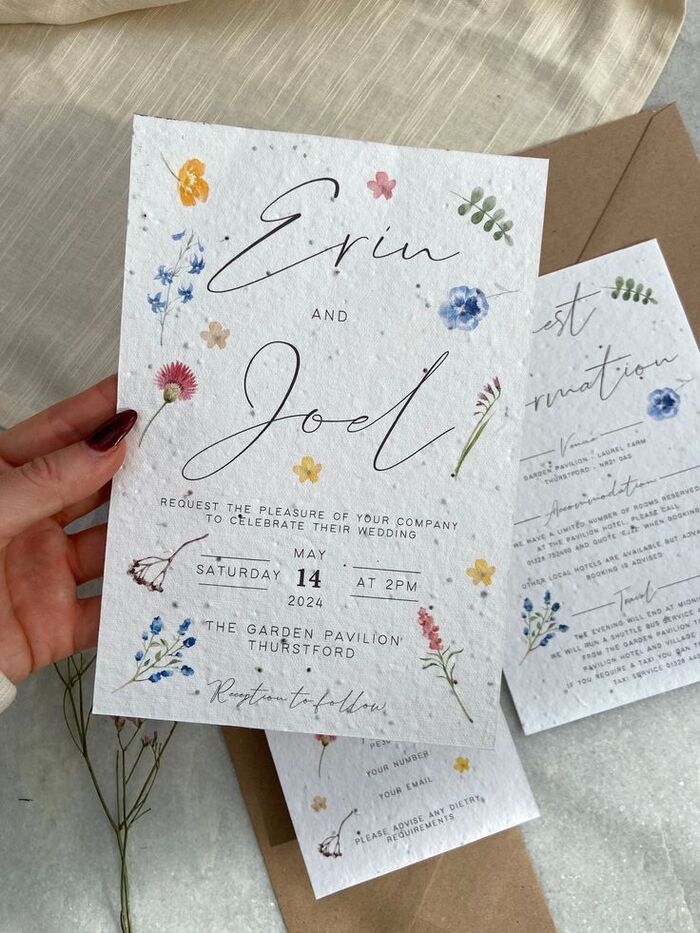 Erin
AND
Joel
REQUEST THE PLEASURE OF YOUR COMPANY
TO CELEBRATE THEIR WEDDING
MAY
SATURDAY 14 AT 2PM
2024
'THE GARDEN PAVILION'
THURSTFORD
Reception to follow
Venue
GARDEN PAVILION - LAUREL FARM
THURSTFORD - NR21 0AS
Accommodation
WE HAVE A LIMITED NUMBER OF ROOMS RESERVED
AT THE PAVILION HOTEL, PLEASE CALL
01328 752490 AND QUOTE WHEN BOOKING
OTHER LOCAL HOTELS ARE AVAILABLE BUT
BOOKING IS ADVISED.
Travel
THE EVENING WILL END AT
WE WILL RUN A SHUTTLE BUS
FROM THE GARDEN PAVILION
PAVILION HOTEL AND
IF YOU REQUIRE A TAXI YOU
TAXI SERVICE 01328
YOUR NUMBER
YOUR EMAIL
PLEASE ADVISE ANY DIETRY
REQUIREMENTS